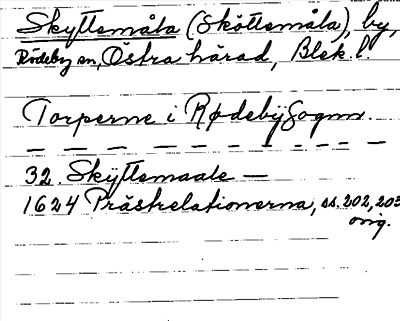 Skyttemåla (Sköttemåla), by,
Rödeby sn, Östra härad, Blek. l.
Torperne i Rødebÿ Sognn.
— — — — — — — — — —
32. Skÿttemaale —
1624 Prästrelationerna, ss. 202, 203
orig.